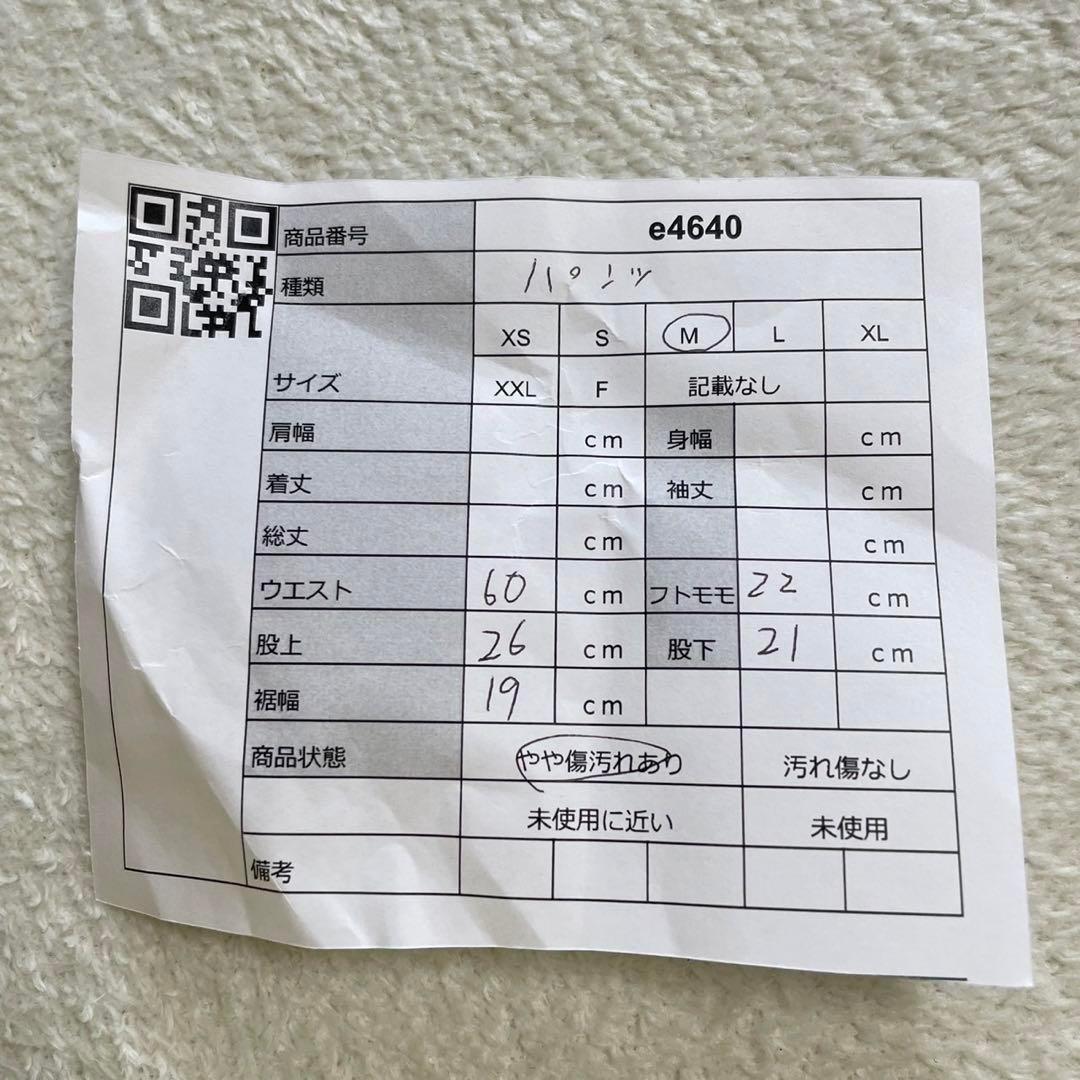 商品番号 e4640
種類 パンツ
XS S M L XL
サイズ XXL F 記載なし
肩幅 cm 身幅 cm
着丈 cm 袖丈 cm
総丈 cm cm
ウエスト 60 cm フトモモ 22 cm
股上 26 cm 股下 21 cm
裾幅 19 cm
商品状態 やや傷汚れあり 汚れ傷なし
未使用に近い 未使用
備考